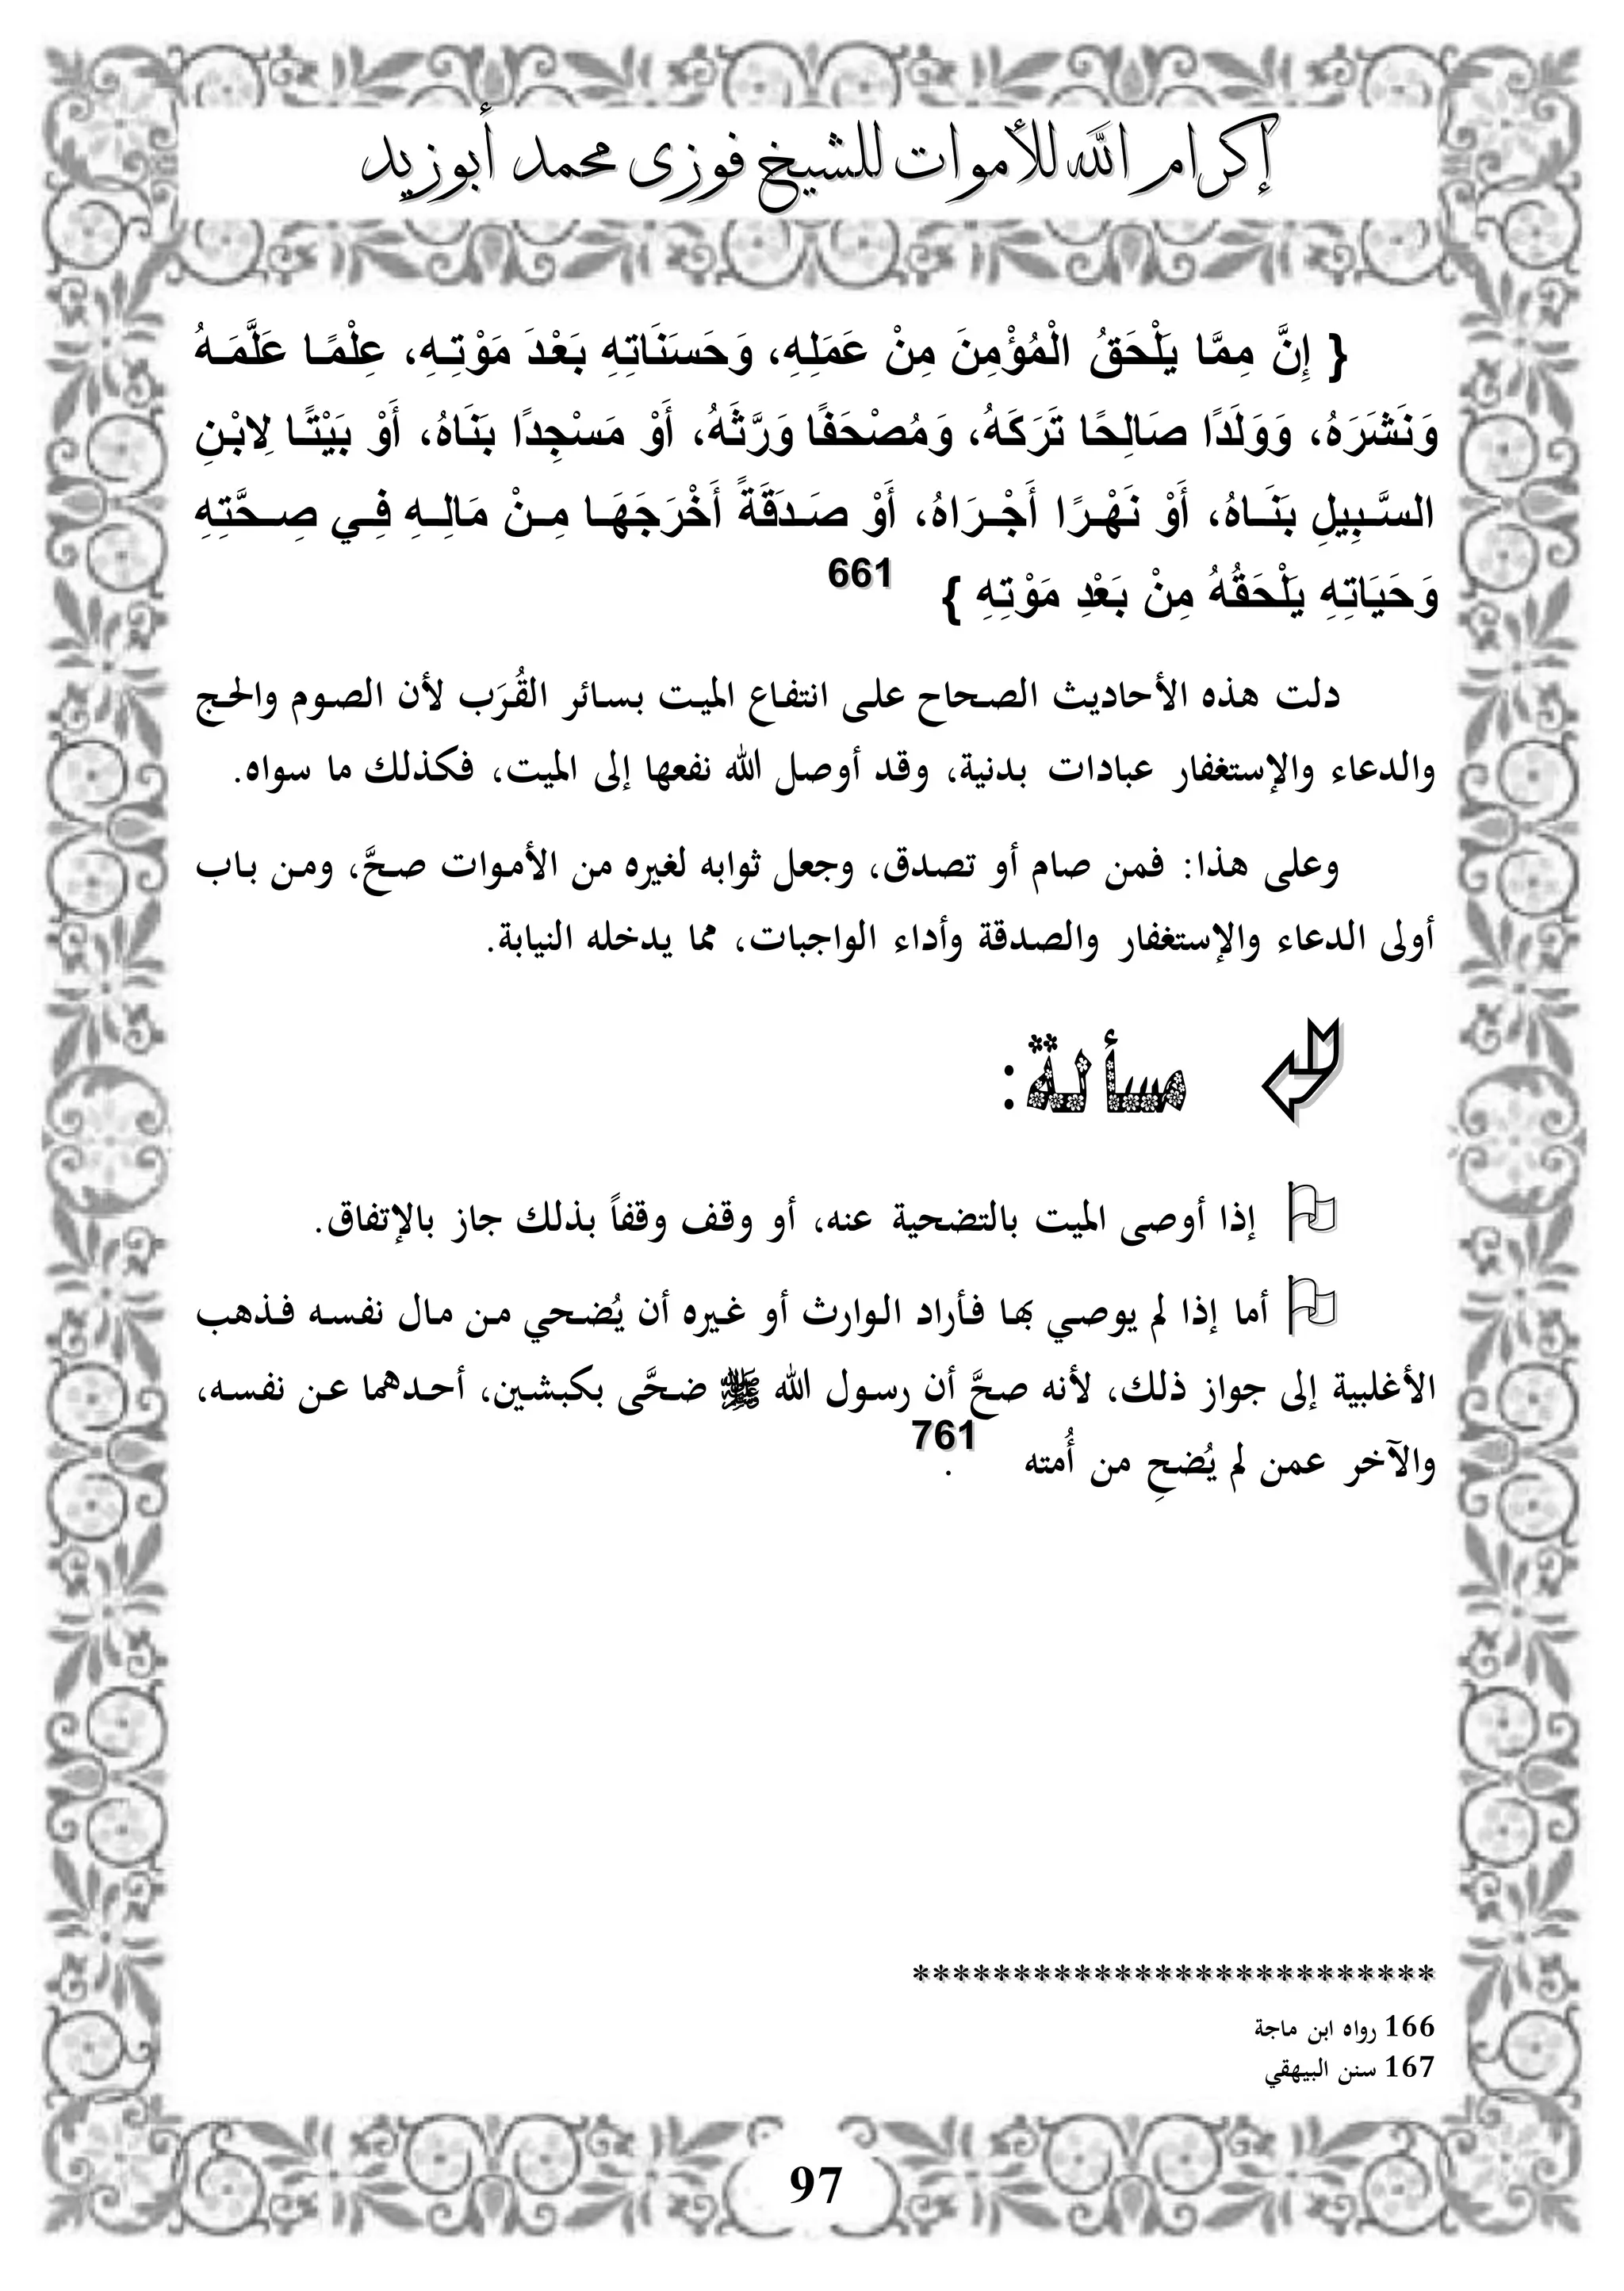 إكرام الله للأموات للشيخ فوزى محمد أبوزيد
{ إِنَّ مِمَّا يَلْحَقُ الْمُؤْمِنَ مِنْ عَمَلِهِ، وَحَسَنَاتِهِ بَعْدَ مَوْتِهِ، عِلْمًا عَلَّمَهُ
وَنَشَرَهُ، وَوَلَدًا صَالِحًا تَرَكَهُ، وَمُصْحَفًا وَرَّثَهُ، أَوْ مَسْجِدًا بَنَاهُ، أَوْ بَيْتًا لِابْنِ
السَّبِيلِ بَنَاهُ، أَوْ نَهْرًا أَجْرَاهُ، أَوْ صَدَقَةً أَخْرَجَهَا مِنْ مَالِهِ فِي صِحَّتِهِ
وَحَيَاتِهِ يَلْحَقُهُ مِنْ بَعْدِ مَوْتِهِ } 661
دلت هذه الأحاديث الصحاح على انتفاع الميت بسائر القُرَب لأن الصوم والحج
والدعاء والإستغفار عبادات بدنية، وقد أوصل الله نفعها إلى الميت، فكذلك ما سواه.
وعلى هذا: فمن صام أو تصدق، وجعل ثوابه لغيره من الأموات صحَّ، ومن باب
أولى الدعاء والإستغفار والصدقة وأداء الواجبات، مما يدخله النيابة.
مسألة:
إذا أوصى الميت بالتضحية عنه، أو وقف وقفاً بذلك جاز بالإتفاق.
أما إذا لم يوصي بها فأراد الوارث أو غيره أن يُضحي من مال نفسه فذهب
الأغلبية إلى جواز ذلك، لأنه صحَّ أن رسول الله ﷺ ضحَّى بكبشين، أحدهما عن نفسه،
والآخر عمن لم يُضحِ من أُمته 761.
**************************
166 رواه ابن ماجة
167 سنن البيهقي
97